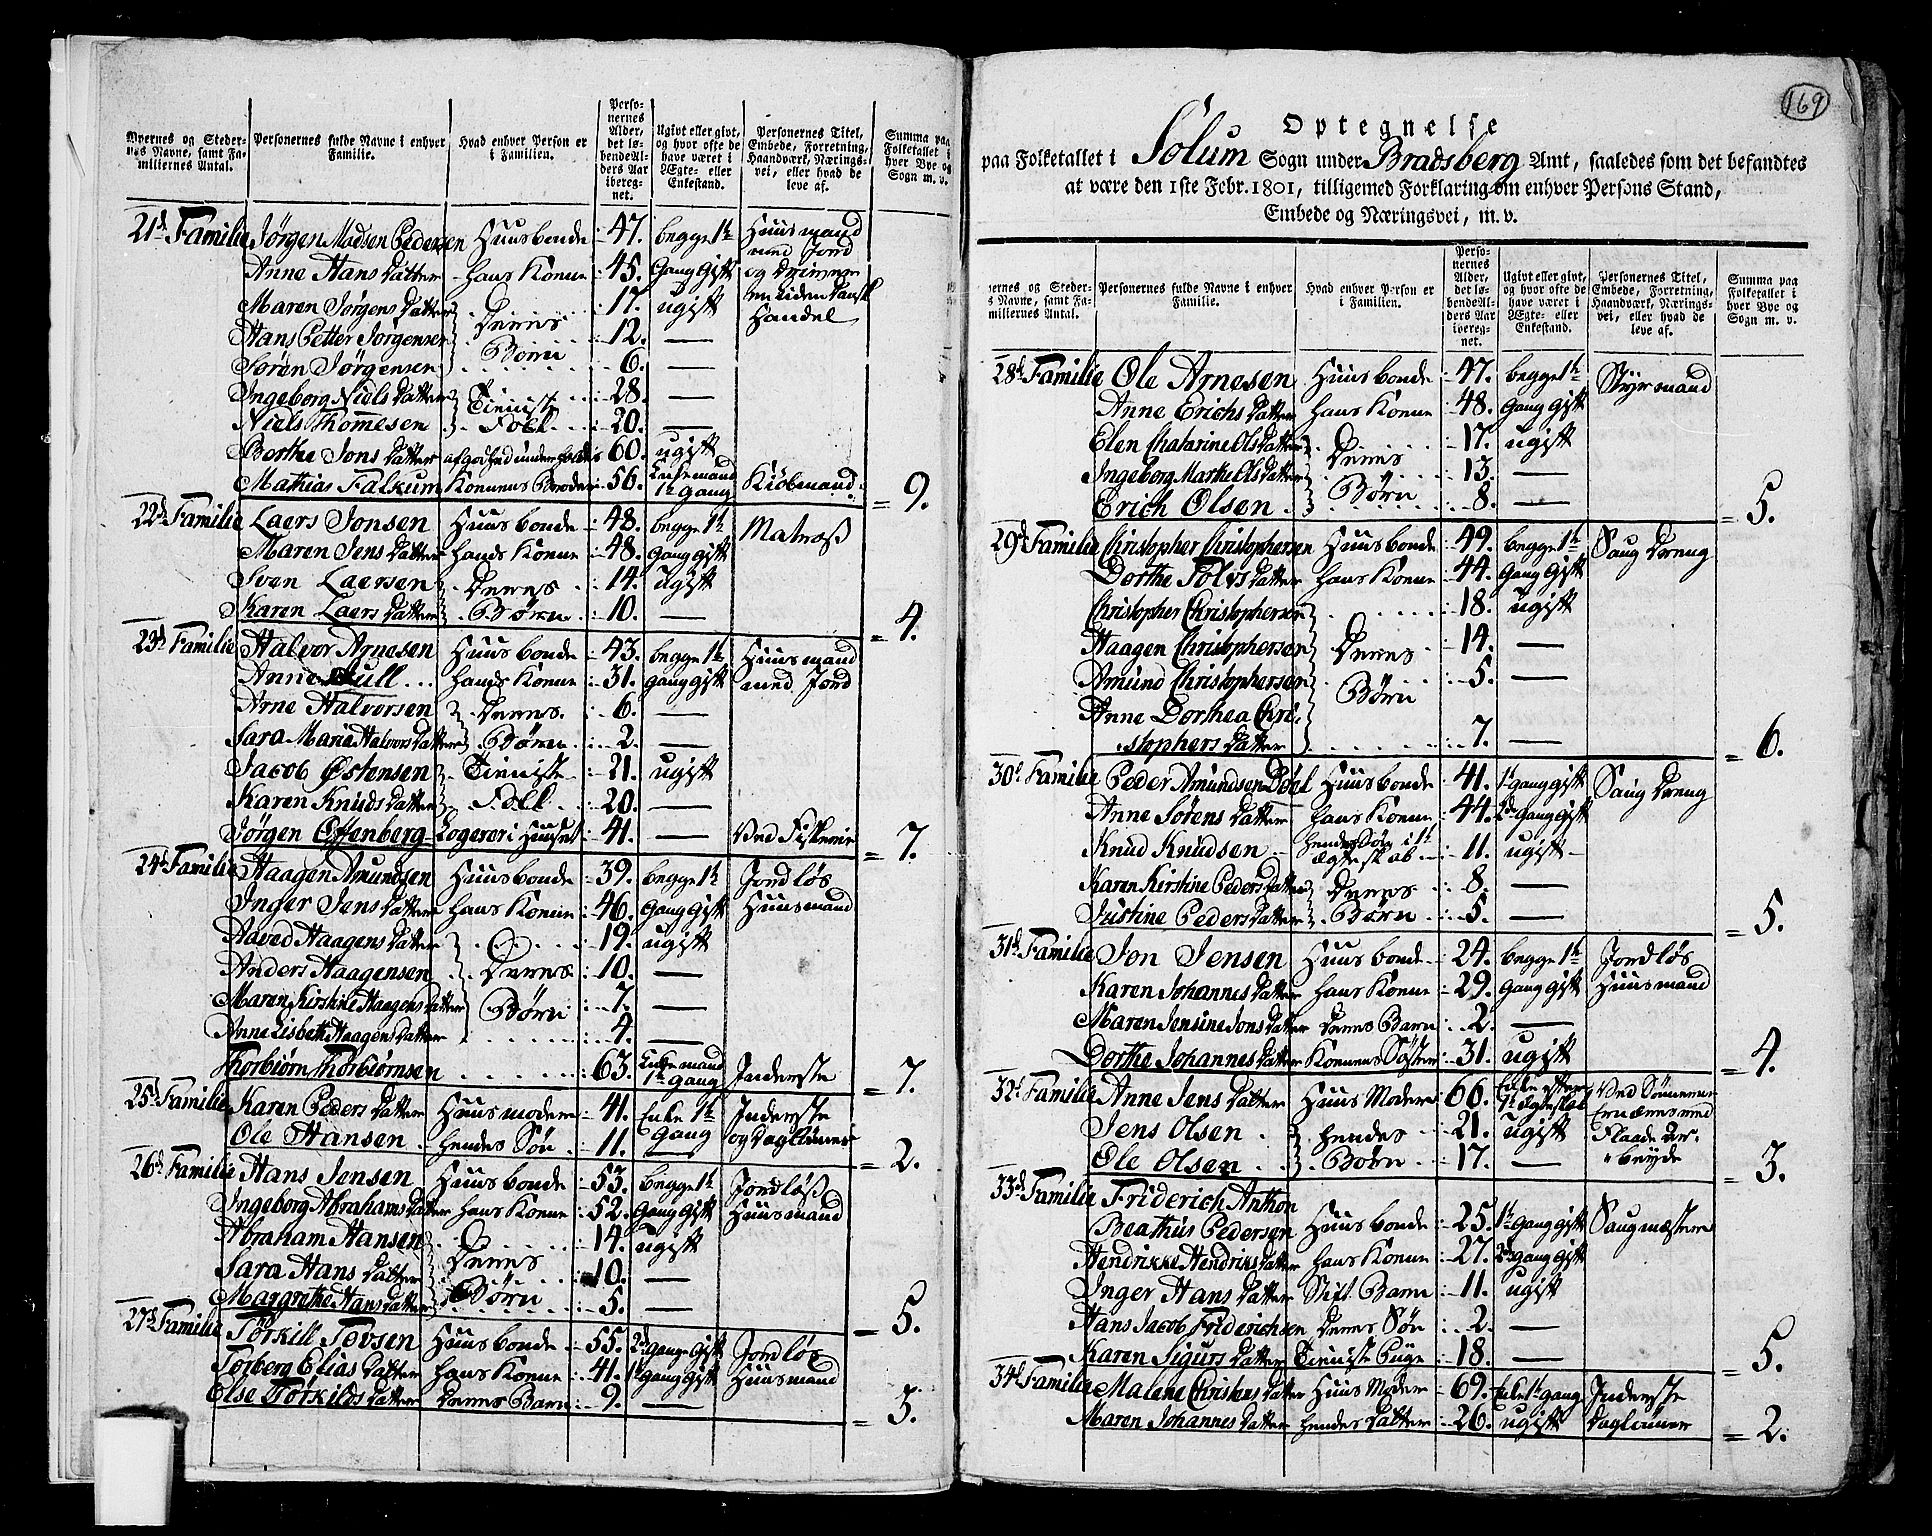 Byernes og Steder-
nes Navne, samt Fa-
miliernes Antal.
Personernes fulde Navne i enhver
Familie.
Hvad enhver Person er
i Familien.
Perso-
nernes
Alder,
det lø-
bende Al-
ders Aar
ibereg-
net.
Ugivt eller givt,
og hvor ofte de
have været i
Ægte- eller
Enkestand.
Personernes Titel,
Embede, Forretning,
Haandværk, Nærings-
vei, eller hvad de
leve af.
Summa paa
Folketallet i
hver Bye og
Sogn m. v.
21de Familie Jørgen Madsen Pedersen Huusbonde 47. begge 1te Huusmand
Anne Hans Datter hans Konne 45. Gang Gift med Jord
Maren Jørgens Datter Deres 17. ugift
Hans Petter Jørgensen Børn 12. — Handel
Søren Jørgensen 6. —
Ingeborg Niels Datter Tieniste 28. —
Niels Thommesen Folk 20. —
Berthe Jons Datter 60. ugift
Mathias Falkum Konnens Broder 56. Enkemand 1te Gang Kiøbmand = 9.
22de Familie Laers Jonsen Huusbonde 48. begge 1te Matros
Maren Jens Datter hands Konne 48. Gang Gift
Sven Laersen Deres 14. ugift
Karen Laers Datter Børn 10. — = 4.
23de Familie Halvor Arnesen Huusbonde 43. begge 1te Huusmand
Anne Jull hands Konne 31. gang gift med Jord
Arne Halvorsen Deres 6. —
Sara Maria Halvors Datter Børn 2. —
Jacob Østensen Tieniste 21. ugift
Karen Knuds Datter Folk 20. —
Jørgen Effenberg Logerer i Huuset 41. — Ved Fiskerie = 7.
24de Familie Haagen Amundsen Huusbonde 39. begge 1te Jordløs
Inger Jens Datter hans Konne 46. Gang Gift Huusmand
Aaved Haagens Datter 19. ugift
Anders Haagensen Deres 10. —
Maren Kirstine Haagens Datter Børn 7. —
Anne Lisbeth Haagens Datter 4. —
Thorbiørn Thorbiørnsen 63. Enkemand 1te Gang Inderste = 7.
25de Familie Karen Peders Datter Huusmoder 41. Enke 1te Inderste
Ole Hansen hendes Søn 11. Gang og Daglønner = 2.
26de Familie Hans Jensen Huusbonde 53. begge 1te Jordløs
Ingeborg Abrahams Datter hans Konne 52. Gang Gift Huusmand
Abraham Hansen 14. ugift
Sara Hans Datter Deres 10. —
Margrethe Hans Datter Børn 5. — = 5.
27de Familie Torkill Tovsen Huusbonde 55. 2de Gange Gift Jordløs
Torberg Elias Datter hans Konne 41. 1te gang gift Huusmand
Else Torkilds Datter Deres Barn 9. — = 3.
169
Optegnelse
paa Folketallet i Solum Sogn under Bradsberg Amt, saaledes som det befandtes
at være den 1ste Febr. 1801, tilligemed Forklaring om enhver Persons Stand,
Embede og Næringsvei, m. v.
ernes og Steder-
s Navne, samt Fa-
miliernes Antal.
Personernes fulde Navne i enhver
Familie.
Hvad enhver Person er
i Familien.
Perso-
nernes
Alder,
det lø-
bende Al-
ders Aar
ibereg-
net.
Ugivt eller givt,
og hvor ofte de
have været i
Ægte- eller
Enkestand.
Personernes Titel,
Embede, Forretning,
Haandværk, Nærings-
vei, eller hvad de
leve af.
Summa paa
Folketallet i
hver Bye og
Sogn m. v.
28de Familie Ole Arnesen Huusbonde 47. begge 1te Styrmand
Anne Erichs Datter hans Konne 48. Gang Gift
Elen Chatarine Ols Datter 17. ugift
Ingeborg Marthe Ols Datter Deres 13. —
Erich Olsen Børn 8. — = 5.
29de Familie Christopher Christophersen Huusbonde 49. begge 1te Saug Dreng
Dorthe Solvs Datter hans Konne 44. Gang Gift
Christopher Christophersen 18. ugift
Haagen Christophersen Deres 14. —
Amund Christophersen Børn 5. —
Anne Dorthea Chri-
stophers Datter 7. — = 6.
30de Familie Peder Amundsen Døhl Huusbonde 41. 1te gang gift Saug Dreng
Anne Sørens Datter hans Konne 44. 2de Gang Gift
Knud Knudsen hendes Søn i 1te Ægteskab 11. ugift
Karen Kirstine Peders Datter Deres 8. —
Justine Peders Datter Børn 5. — = 5.
31de Familie Jon Jensen Huusbonde 24. begge 1te Jordløs
Karen Johannes Datter hans Konne 29. Gang Gift Huusmand
Maren Jensine Jons Datter Deres Barn 2. —
Dorthe Johannes Datter Konnens Søster 31. ugift = 4.
32de Familie Anne Jens Datter Huus Moder 66. Enke efter 1te Ægteskab Ved Sønnernes
Jens Olsen hendes 21. ugift
Ole Olsen Børn 17. — = 3.
33de Familie Friderich Anthon
Beathus Pedersen Huusbonde 25. 1te Gang gift Saugmester
Hendrikke Hendriks Datter hans Konne 27. 2de Gang Gift
Inger Hans Datter Stif Barn 11. ugift
Hans Jacob Friderichsen Deres Søn 2. —
Karen Sigurs Datter Tieniste Pige 18. — = 5.
34de Familie Malene Christens Datter Huus Moder 69. Enke 1te gang Inderste
Maren Johannes Datter hendes Datter 26. ugift Daglønner = 2.